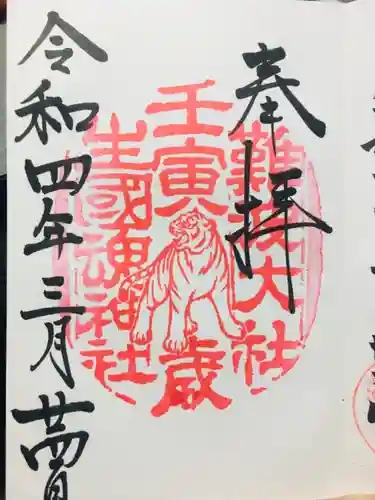 奉拝
難波大社
壬寅歳
生國魂神社
令和四年三月廿四日